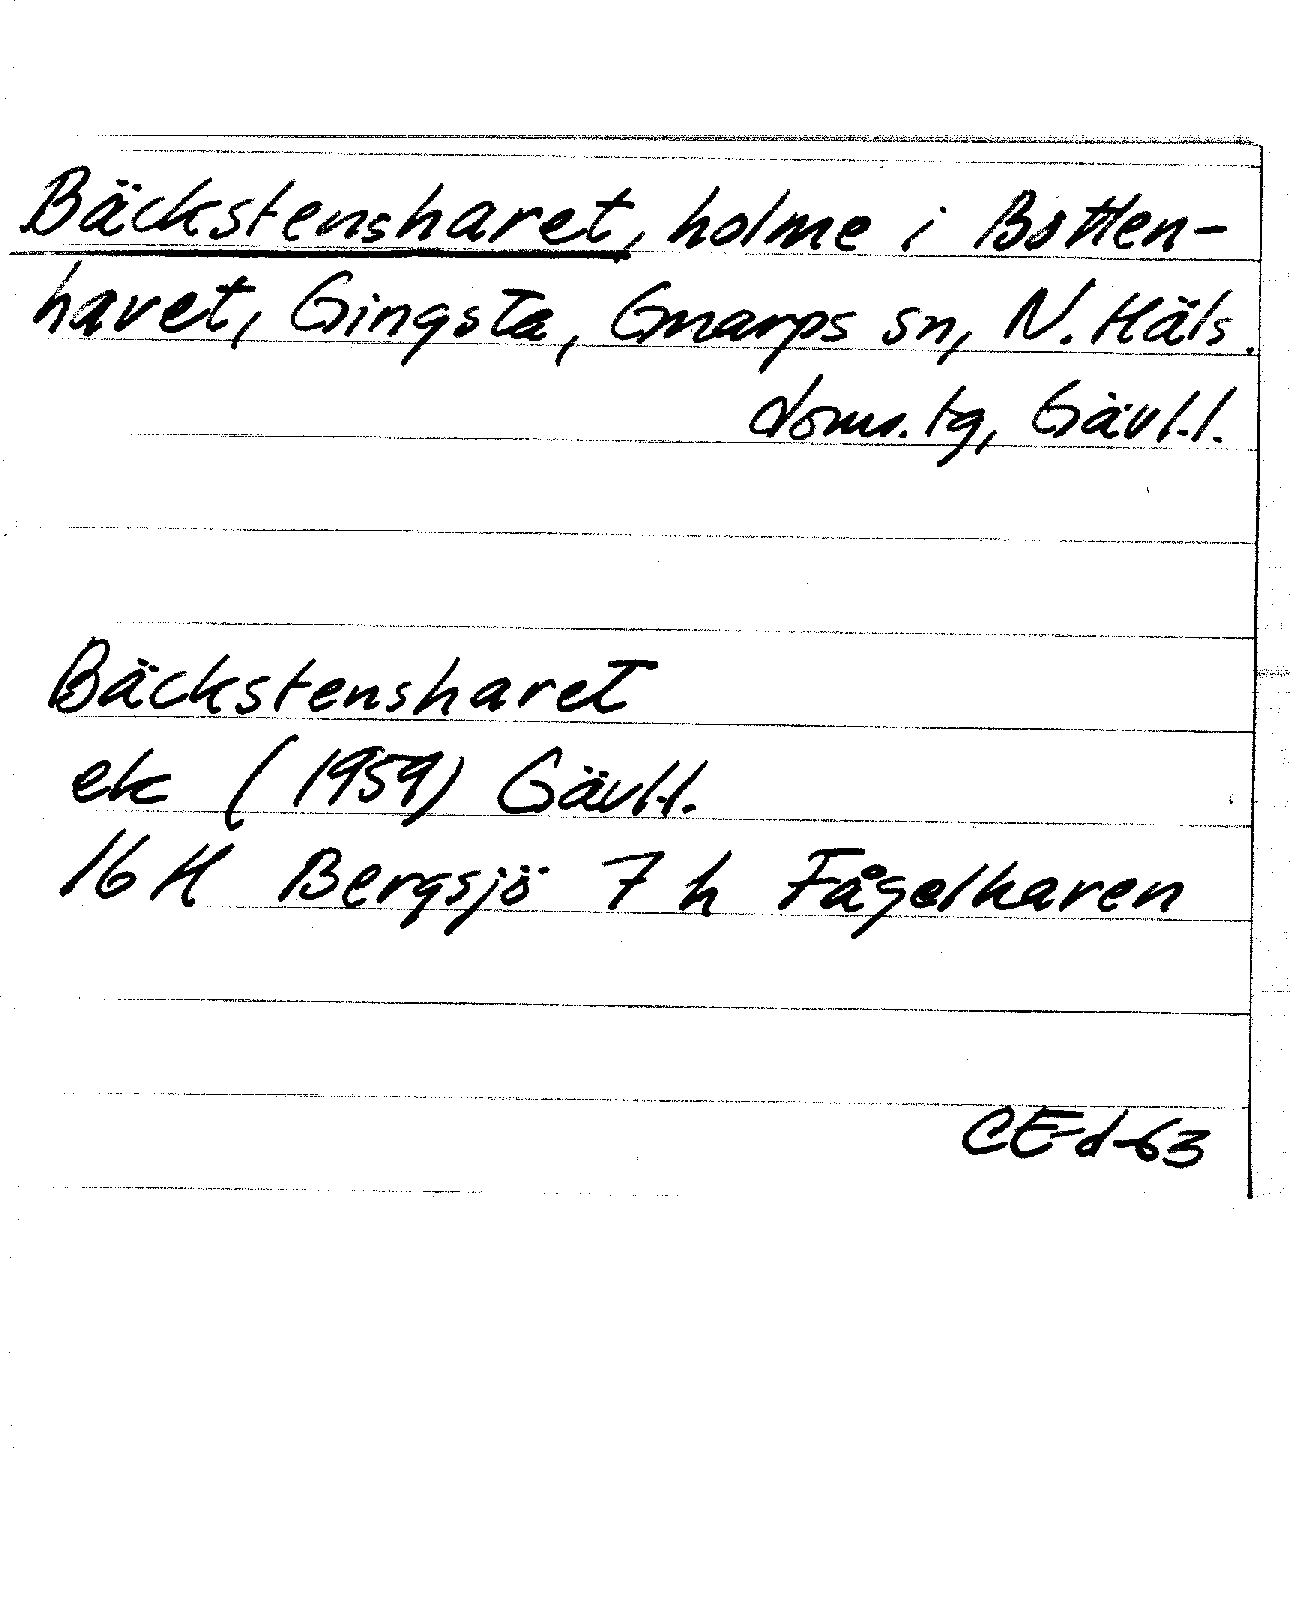 Bäckstensharet, holme i Botten-
havet, Gingsta, Gnarps sn, N. Häls.
doms. tg, Gävl.l.
Bäckstensharet
ek (1959) Gävl.l.
16 H Bergsjö 7 h Fågelharen
CEd-63